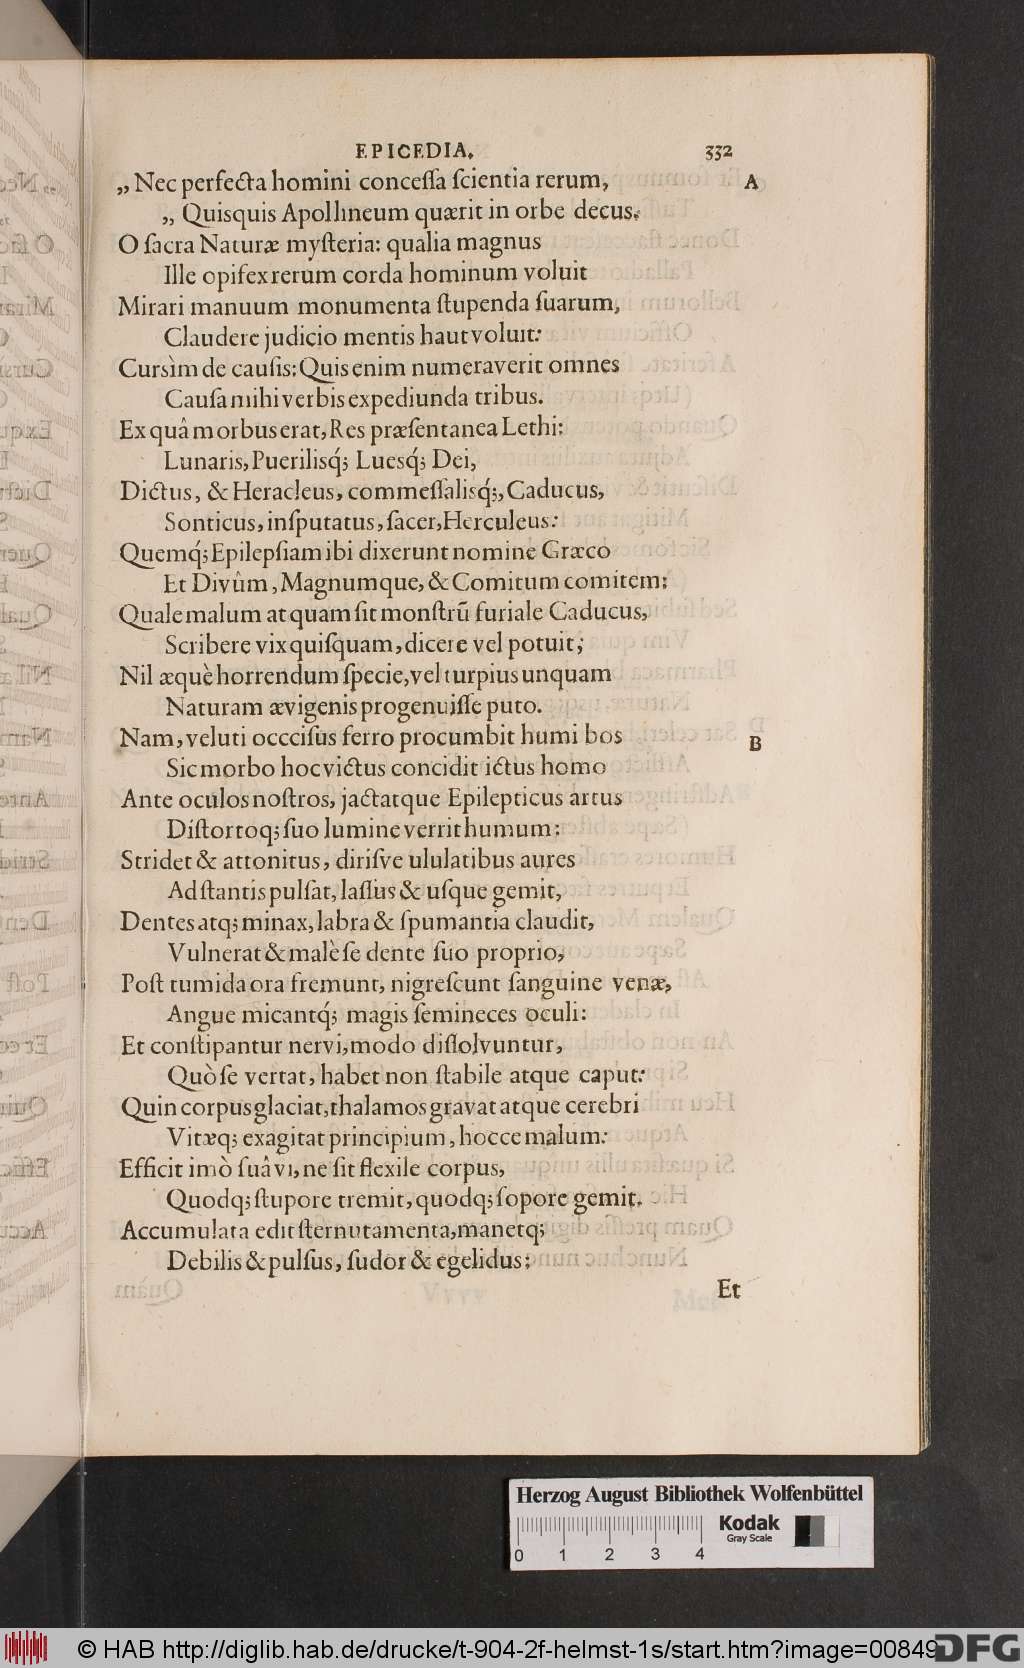 EPICEDIA. 332
„ Nec perfecta homini concessa scientia rerum, A
„ Quisquis Apollineum quærit in orbe decus.
O sacra Naturæ mysteria: qualia magnus
Ille opifex rerum corda hominum voluit
Mirari manuum monumenta stupenda suarum,
Claudere judicio mentis haut voluit:
Cursìm de causis: Quis enim numeraverit omnes
Causa mihi verbis expediunda tribus.
Ex quâ morbus erat, Res præsentanea Lethi:
Lunaris, Puerilisq́; Luesq́; Dei,
Dictus, & Heracleus, commessalisq́;, Caducus,
Sonticus, insputatus, sacer, Herculeus:
Quemq́; Epilepsiam ibi dixerunt nomine Græco
Et Divûm, Magnumque, & Comitum comitem:
Quale malum at quam sit monstrũ furiale Caducus,
Scribere vix quisquam, dicere vel potuit;
Nil æquè horrendum specie, vel turpius unquam
Naturam ævigenis progenuisse puto.
Nam, veluti occcisus ferro procumbit humi bos B
Sic morbo hoc victus concidit ictus homo
Ante oculos nostros, jactatque Epilepticus artus
Distortoq; suo lumine verrit humum:
Stridet & attonitus, dirisve ululatibus aures
Adstantis pulsat, lassus & usque gemit,
Dentes atq; minax, labra & spumantia claudit,
Vulnerat & malè se dente suo proprio,
Post tumida ora fremunt, nigrescunt sanguine venæ,
Angue micantq́; magis semineces oculi:
Et constipantur nervi, modo dissolvuntur,
Quò se vertat, habet non stabile atque caput:
Quin corpus glaciat, thalamos gravat atque cerebri
Vitæq; exagitat principium, hocce malum:
Efficit imò suâ vi, ne sit flexile corpus,
Quodq; stupore tremit, quodq; sopore gemit.
Accumulata edit sternutamenta, manetq;
Debilis & pulsus, sudor & egelidus:
Et
Herzog August Bibliothek Wolfenbüttel
Kodak
Gray Scale
0 1 2 3 4
© HAB http://diglib.hab.de/drucke/t-904-2f-helmst-1s/start.htm?image=00849
DFG